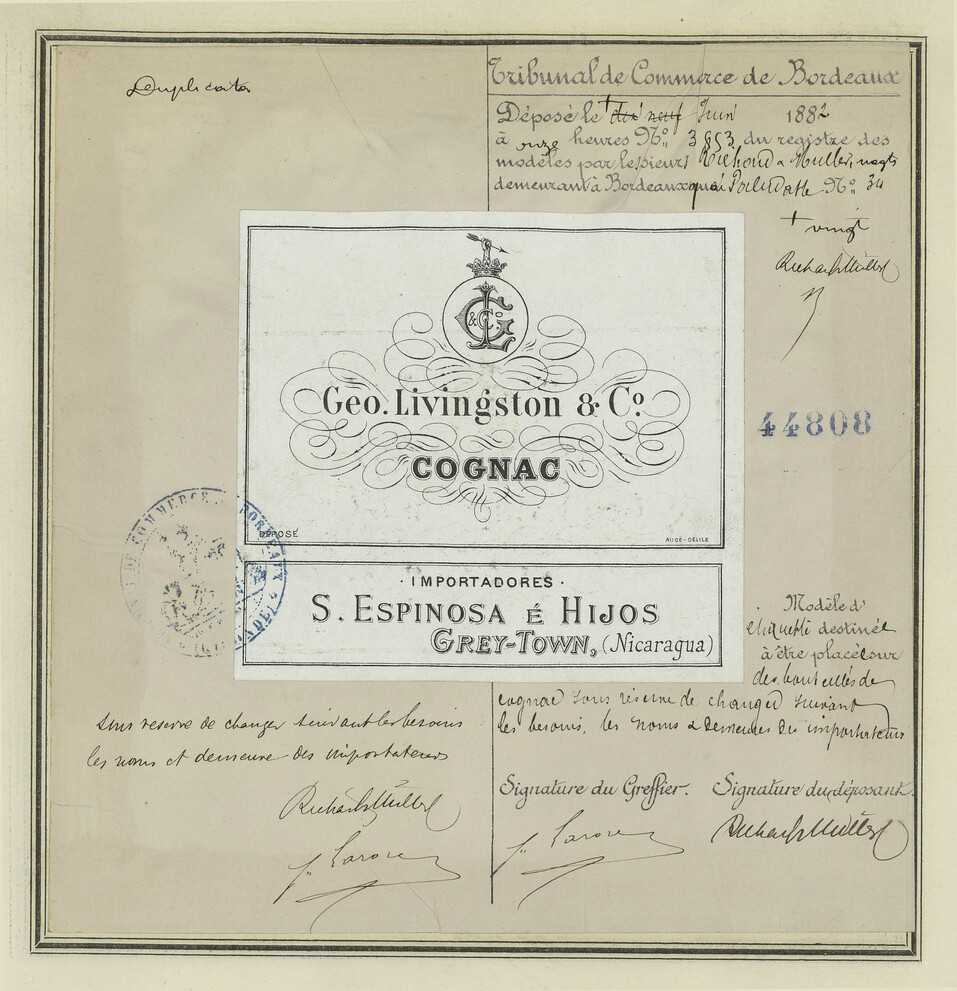 Duplicata
Tribunal de Commerce de Bordeaux
Déposé le + dix neuf Juin 1882
à onze heures N° 3853 du registre des
modèles par les sieurs & Muller, negts
demeurant à Bordeaux quai N° 34
+ vingt
& Co
GL
Geo. Livingston & Co.
COGNAC
44808
DÉPOSÉ
AUGÉ-DELILE
· IMPORTADORES ·
S. ESPINOSA É HIJOS
GREY-TOWN, (Nicaragua)
Modèle d'
etiquette destinée
à être placée sur
des bouteilles de
cognac sous réserve de changer suivant
les besoins, les noms & demeures des importateurs
sous reserve de changer suivant les besoins
les noms et demeure des importateurs
Signature du Greffier. Signature du déposant.